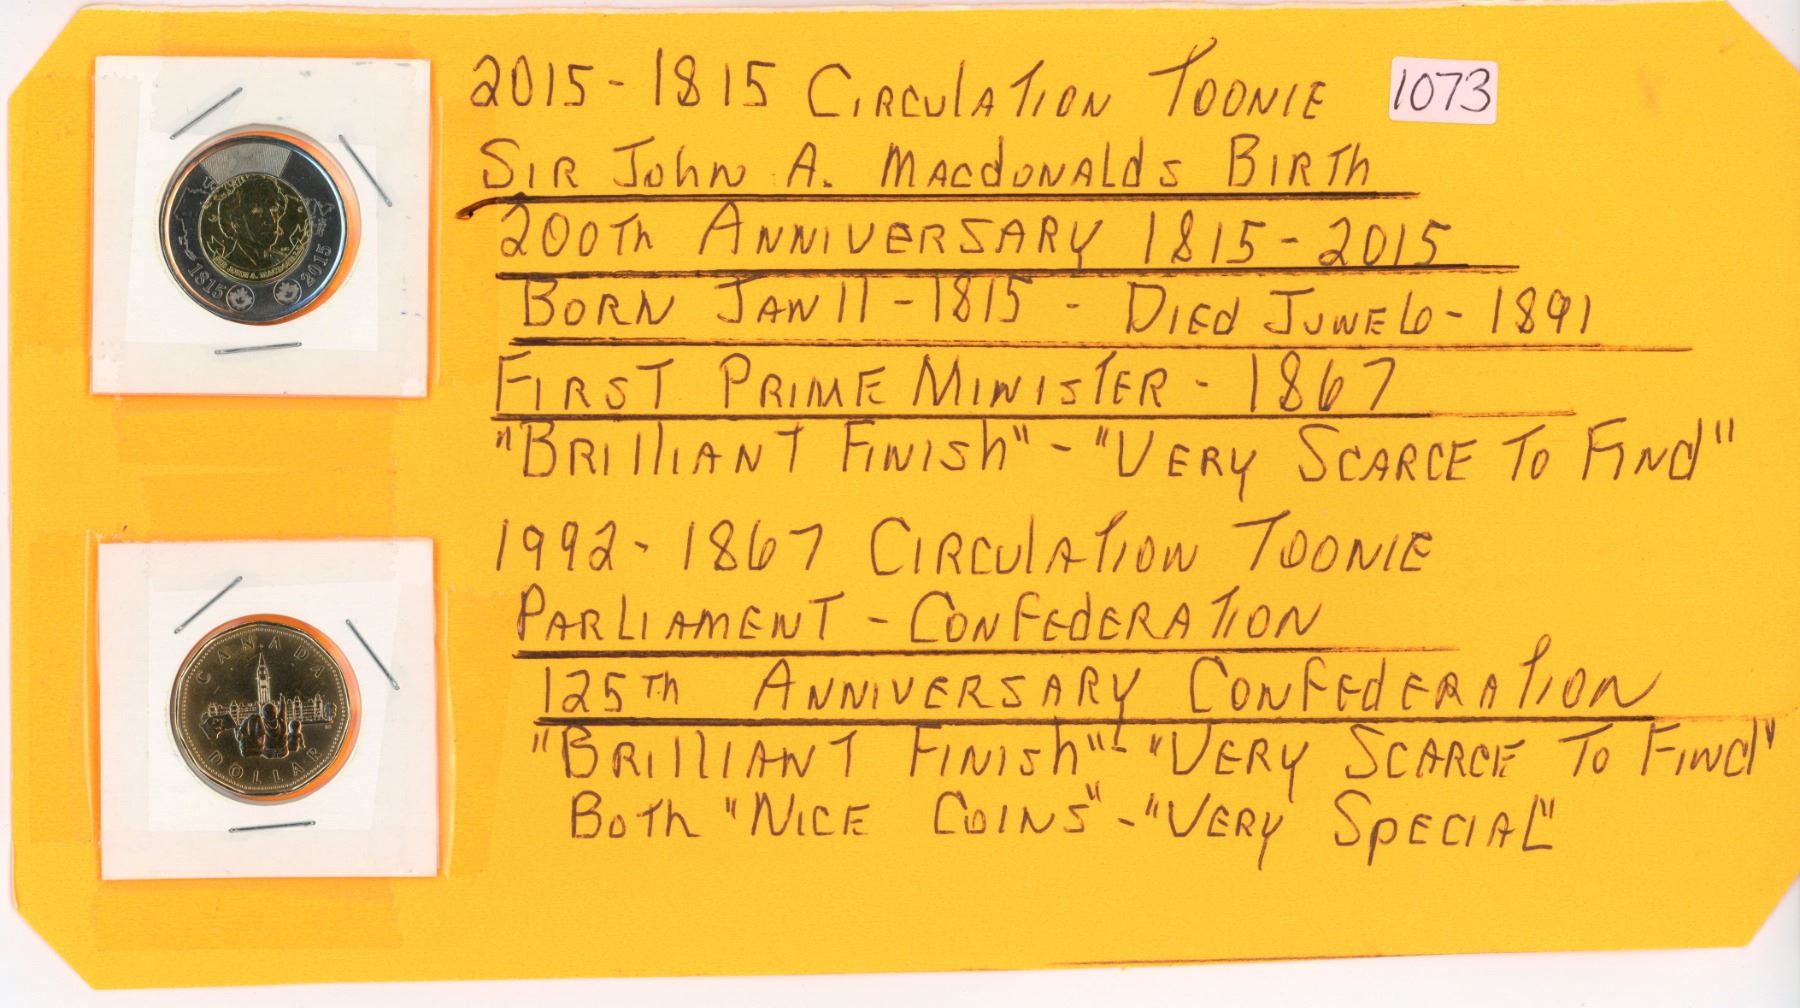 2015-1815 CIRCULATION TOONIE
1073
SIR JOHN A. MACDONALDS BIRTH
200TH ANNIVERSARY 1815-2015
BORN JAN 11-1815 - DIED JUNE 6-1891
FIRST PRIME MINISTER - 1867
"BRILLIANT FINISH" - "VERY SCARCE TO FIND"
1992-1867 CIRCULATION TOONIE
PARLIAMENT - CONFEDERATION
125TH ANNIVERSARY CONFEDERATION
"BRILLIANT FINISH" - "VERY SCARCE TO FIND"
BOTH "NICE COINS" - "VERY SPECIAL"
SIR JOHN A. MACDONALD
1815 2015
CANADA
DOLLAR